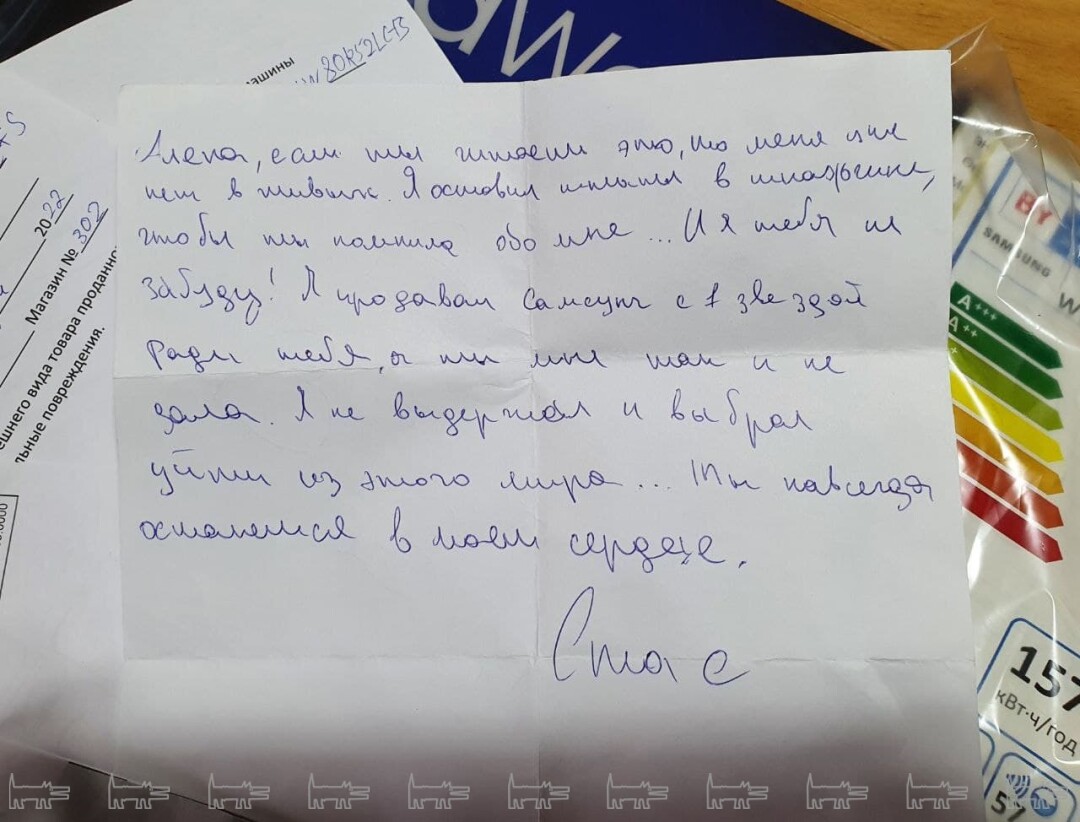 80R52LCFB
ашины
2022
Магазин № 302
ешнего вида товара проданно
льные повреждения.
Алена, если ты читаешь это, то меня уже
нет в живых. Я оставил штаты в
чтобы ты помнила обо мне... И я тебя не
забуду! Я продавал Самсунг с 1 звездой
ради тебя, а ты мне так и не
дала. Я не выдержал и выбрал
уйти из этого мира... Ты навсегда
останешься в моем сердце.
Стас
BY
SAMSUNG
W
A+++
A++
157
кВт·ч/год
57